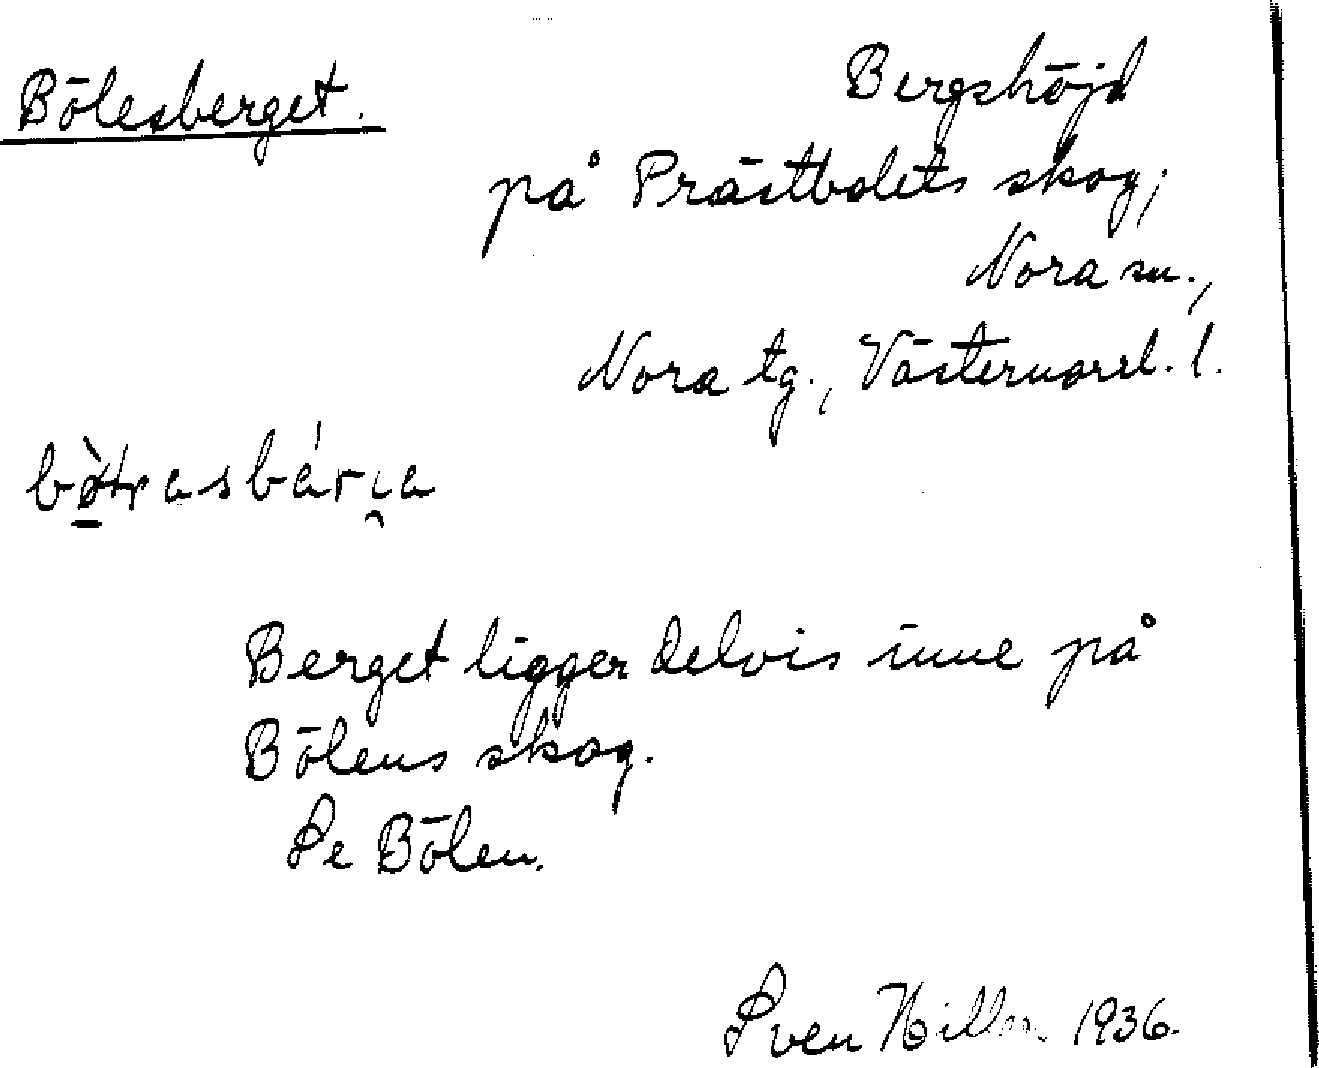 Bölesberget.
Bergshöjd
på Prästbolets skog;
Nora sn.,
Nora tg., Västernorrl. l.
Berget ligger delvis inne på
Bölens skog.
Se Bölen.
Sven Hillen 1936.